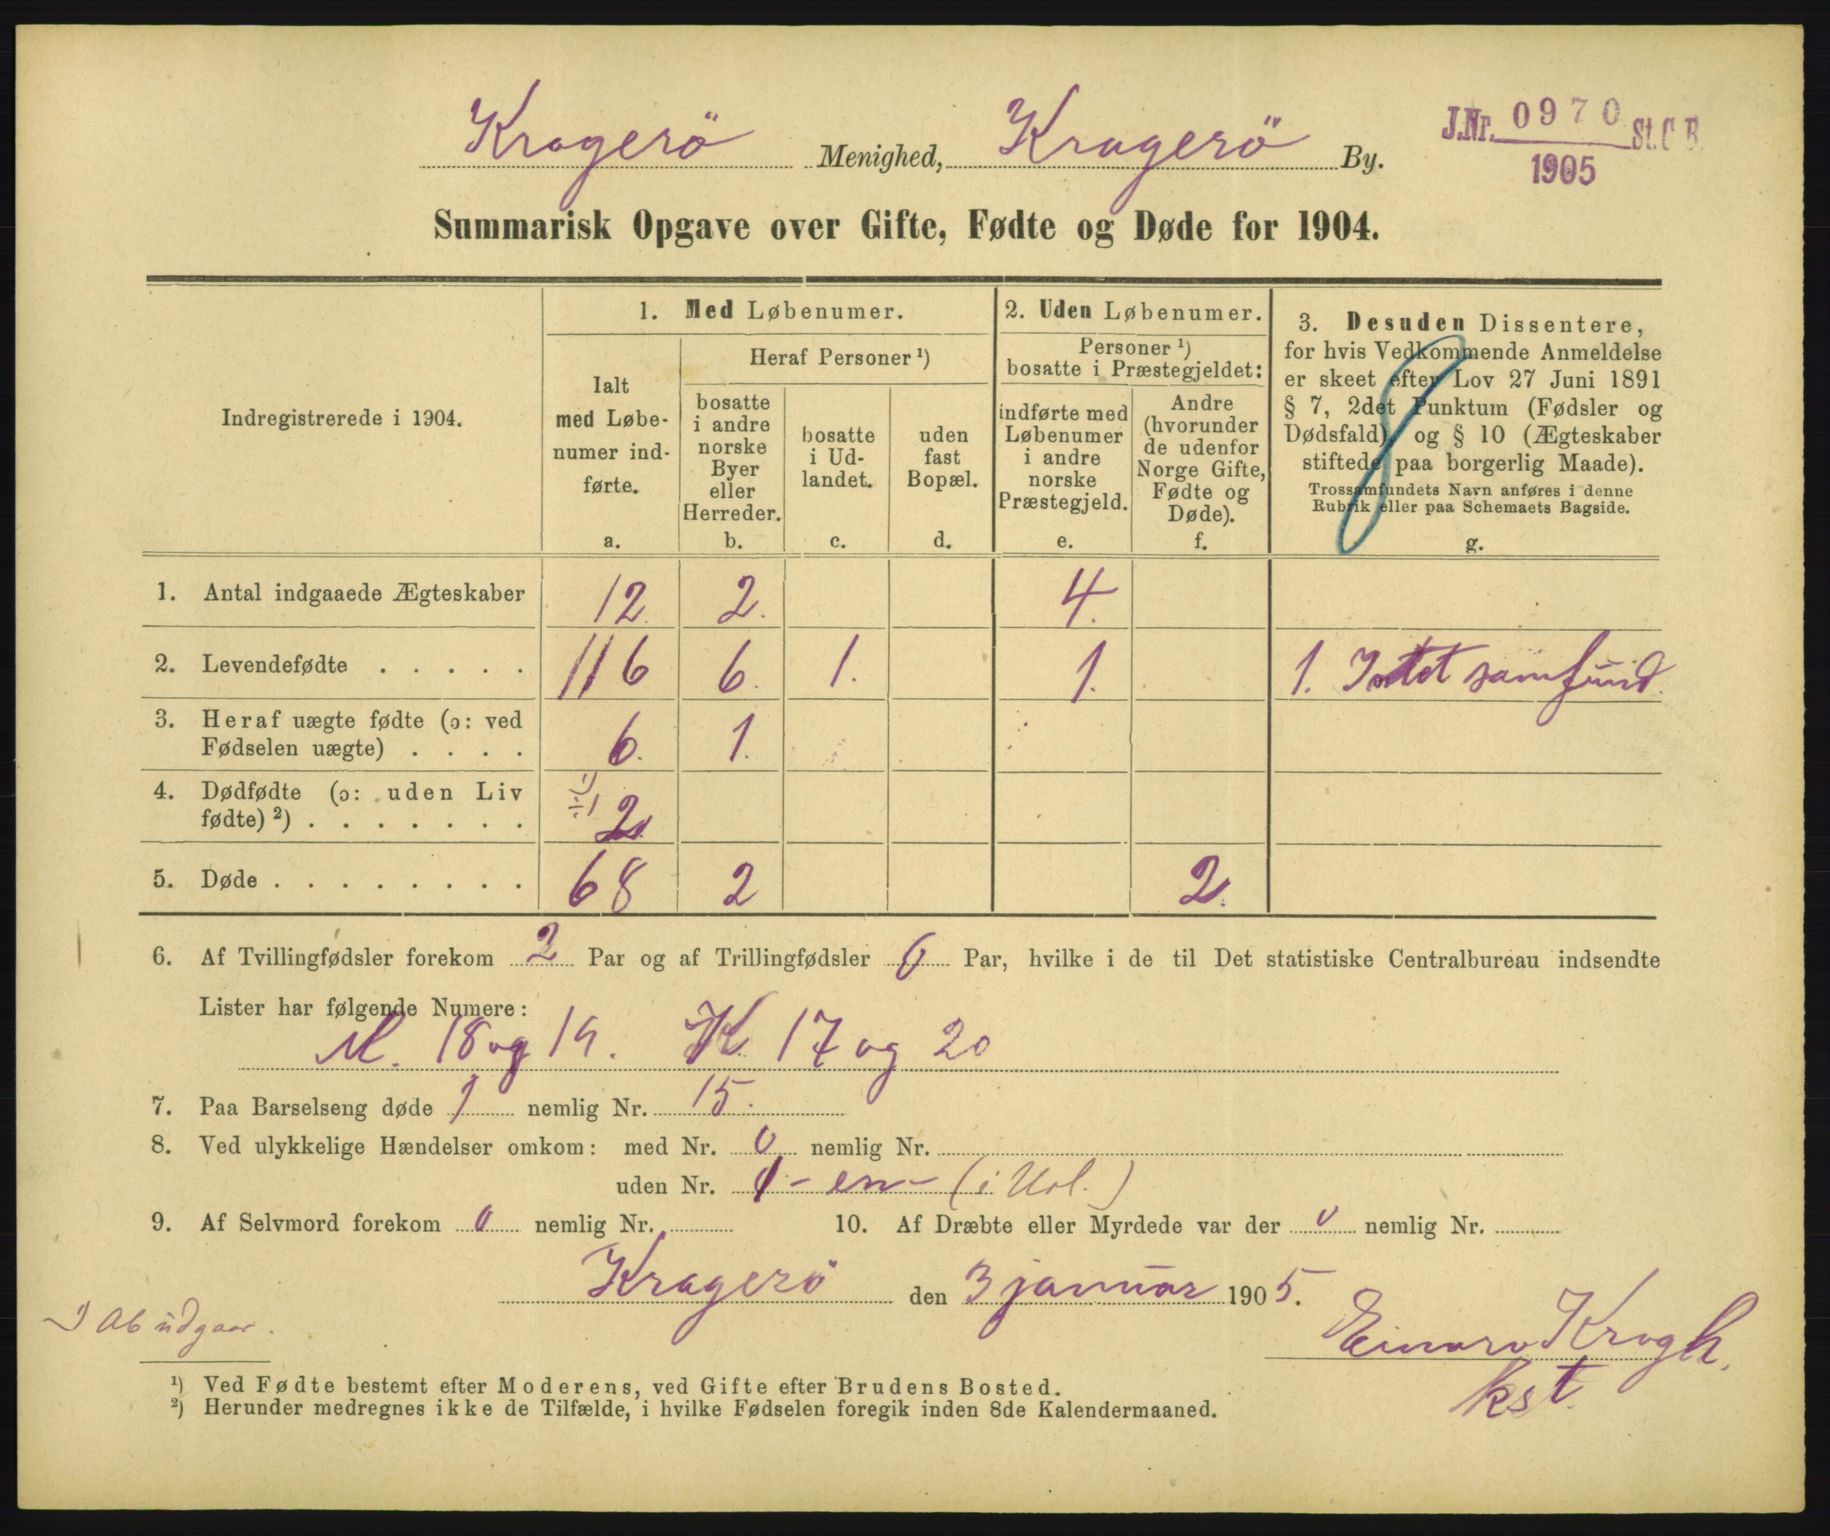 Kragerö Menighed, Kragerö By.
J.Nr. 0970 St. C. B.
1905
Summarisk Opgave over Gifte, Fødte og Døde for 1904.
Indregistrerede i 1904.
1. Med Løbenumer.
Ialt
med Løbe-
numer ind-
førte.
a.
Heraf Personer ¹)
bosatte
i andre
norske
Byer
eller
Herreder.
b.
bosatte
i Ud-
landet.
c.
uden
fast
Bopæl.
d.
2. Uden Løbenumer.
Personer ¹)
bosatte i Præstegjeldet:
indførte med
Løbenumer
i andre
norske
Præstegjeld.
e.
Andre
(hvorunder
de udenfor
Norge Gifte,
Fødte og
Døde).
f.
3. Desuden Dissentere,
for hvis Vedkommende Anmeldelse
er skeet efter Lov 27 Juni 1891
§ 7, 2det Punktum (Fødsler og
Dødsfald) og § 10 (Ægteskaber
stiftede paa borgerlig Maade).
Trossamfundets Navn anføres i denne
Rubrik eller paa Schemaets Bagside.
g.
1. Antal indgaaede Ægteskaber 12. 2. 4.
2. Levendefødte . . . . . 116 6. 1. 1. 1. Intet samfund.
3. Heraf uægte fødte (ɔ: ved
Fødselen uægte) . . . . 6. 1.
4. Dødfødte (ɔ: uden Liv
fødte) ²) . . . . . . . 2
5. Døde . . . . . . . . 68 2 2.
6. Af Tvillingfødsler forekom 2 Par og af Trillingfødsler 0 Par, hvilke i de til Det statistiske Centralbureau indsendte
Lister har følgende Numere:
M. 18 og 19. K. 17 og 20
7. Paa Barselseng døde 1 nemlig Nr. 15.
8. Ved ulykkelige Hændelser omkom: med Nr. 0 nemlig Nr.
uden Nr. 1 - en - (i Utl.)
9. Af Selvmord forekom 0 nemlig Nr. 10. Af Dræbte eller Myrdede var der 0 nemlig Nr.
Kragerö den 3 januar 1905.
Einar Krogh.
kst.
I Ab udgaar.
¹) Ved Fødte bestemt efter Moderens, ved Gifte efter Brudens Bosted.
²) Herunder medregnes ikke de Tilfælde, i hvilke Fødselen foregik inden 8de Kalendermaaned.